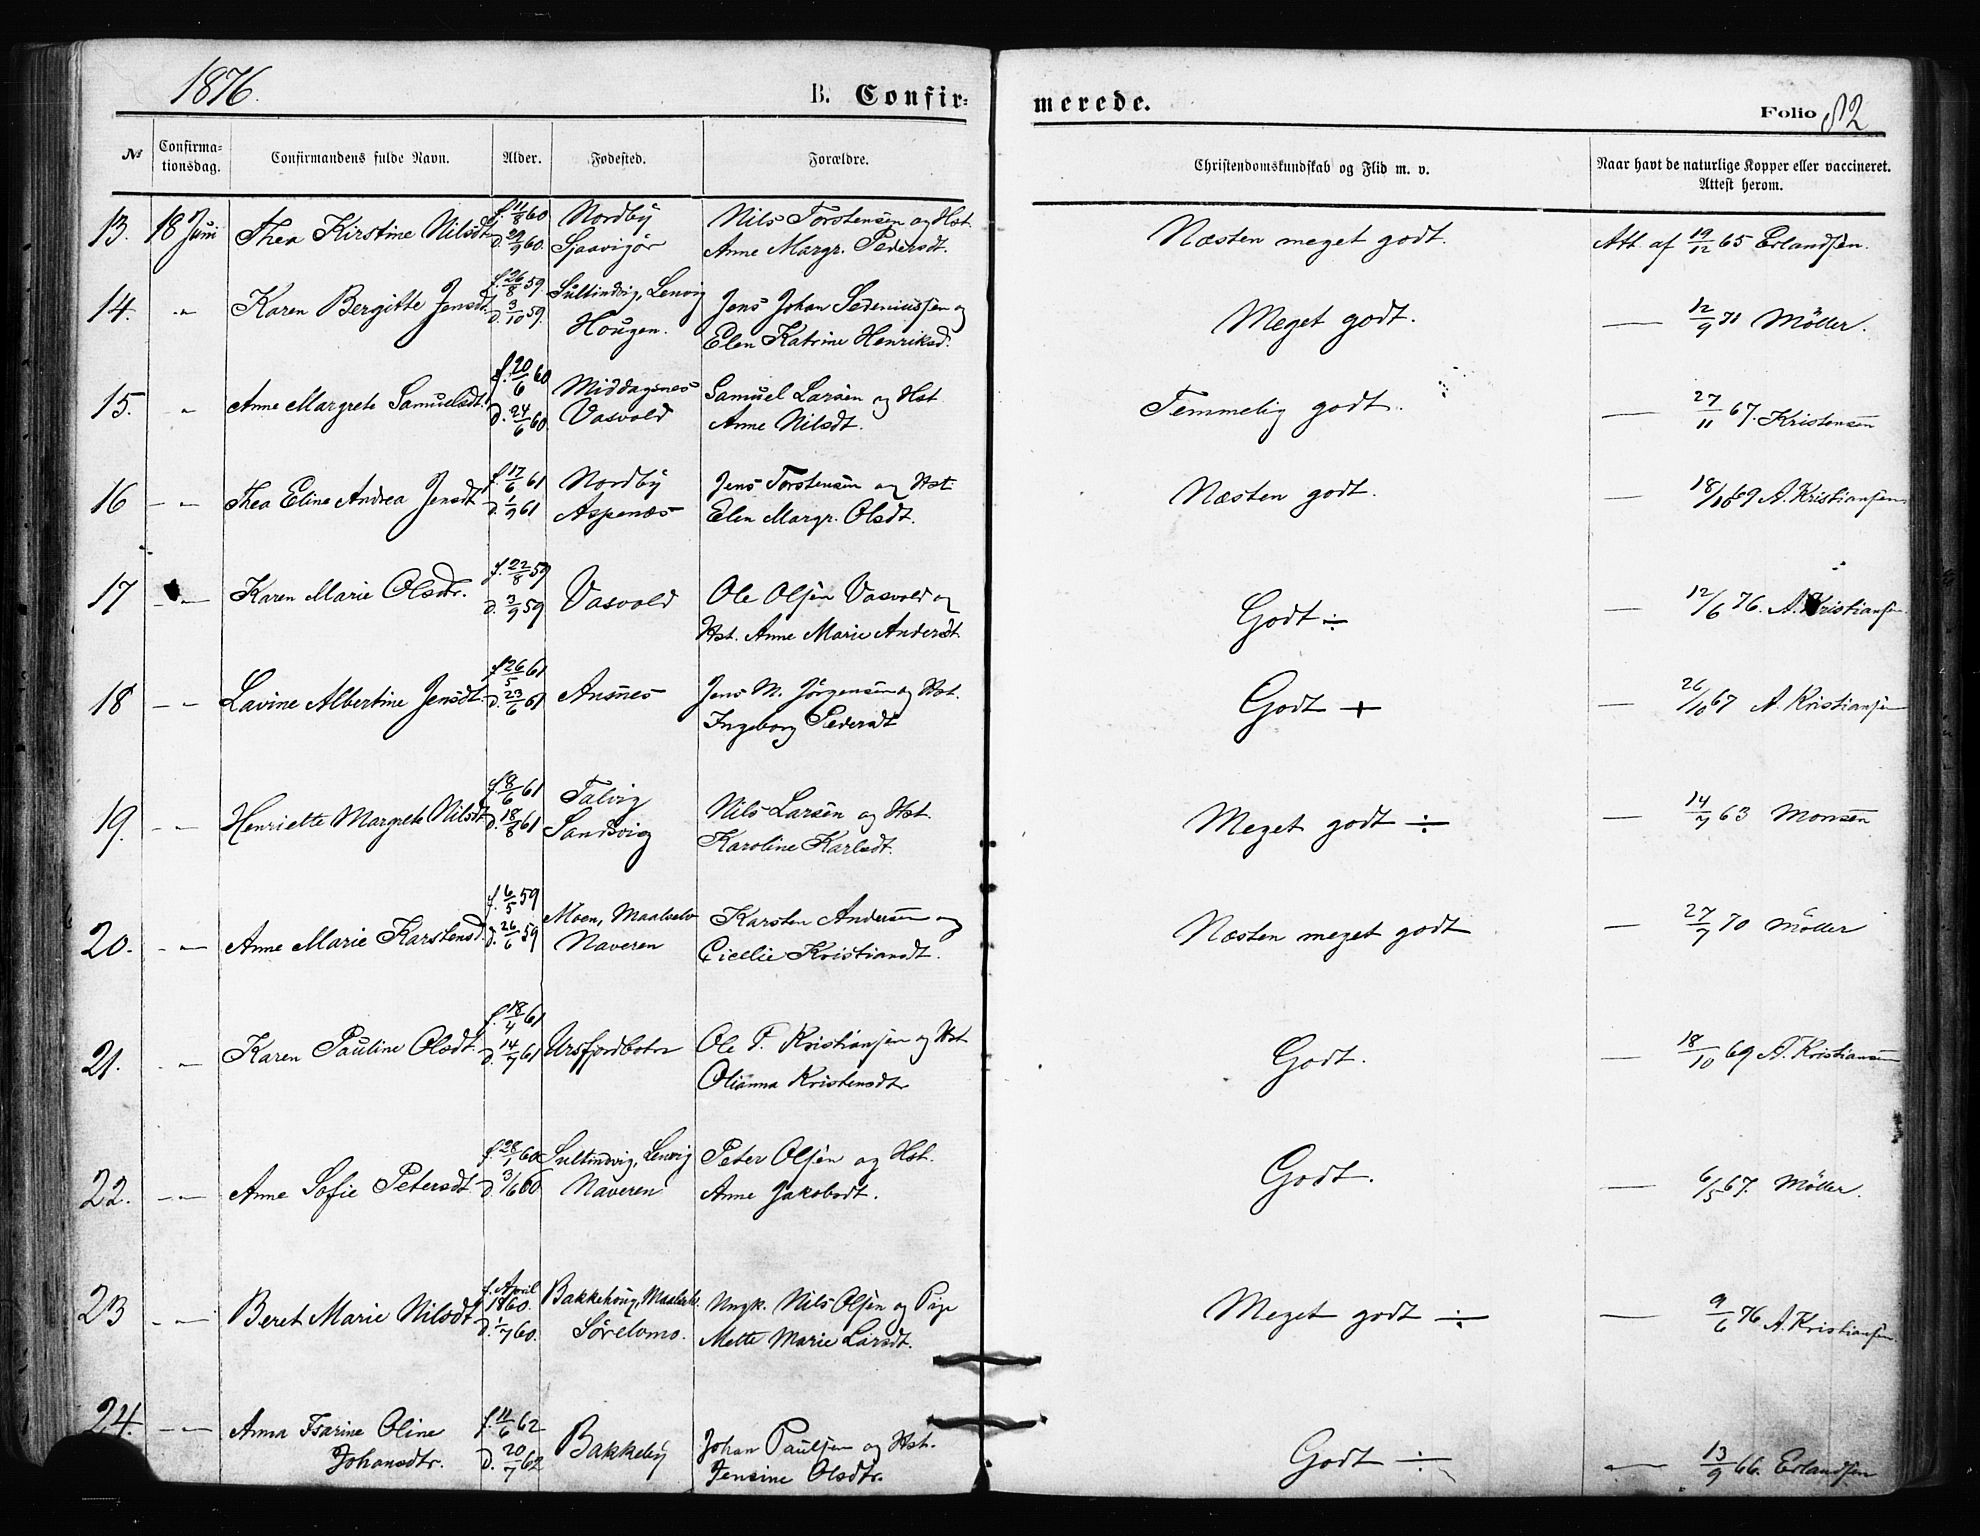 1876.
B. Confir-
merede.
Folio 82
№
Confirma-
tionsdag.
Confirmandens fulde Navn.
Alder.
Fødested.
Forældre.
Christendomskundskab og Flid m. v.
Naar havt de naturlige Kopper eller vaccineret.
Attest herom.
13. 18 Juni Thea Kirstine Nilsdt. f. 11/8 60 d. 29/9 60. Nordby Nils Torstensen og Hst. Næsten meget godt. Att. af 19/12 65 Erlandsen.
Anne Margr. Pedersdt.
14. " Karen Bergitte Jensdt. f. 26/8 59. d. 3/10 59. Sultindvig, Lenvig Jens Johan Sedeniussen og Meget godt. — 12/9 71 Möller.
Hougen. Elen Katrine Henriksd.
15. " Anne Margrete Samuelsdt. f. 20/6 60 d. 24/6 60 Middagsnes Samuel Larsen og Hst. Temmelig godt. — 27/11 67. Kristensen
Vasvold Anne Nilsdt.
16 — " Thea Eline Andrea Jensdt f. 17/6 61 d. 1/9 61 Nordby Jens Torstensen og Hst. Næsten godt. — 18/10 69 A. Kristiansen
Aspenæs Elen Margr. Olsdt.
17 — " — Karen Marie Olsdtr. f. 22/8 59 d. 3/9 59 Vasvold Ole Olsen Vasvold og Godt ÷ — 12/6 76. A. Kristiansen
Hst. Anne Marie Andersdt
18 — " Lavine Albertine Jensdt. f. 26/5 61 d. 23/6 61 Ansnes Jens M. Jörgensen og Hst. Godt + — 26/10 67 A. Kristiansen
Ingeborg Pedersdt
19. — " Henriette Margrete Nilsdt f. 9/6 61 d. 18/8 61 Talvig Nils Larsen og Hst. Meget godt ÷ — 14/7 63 Monsen
Sandvig Karoline Karlsdt.
20. — " Anne Marie Karstensd. f. 6/5 59 d. 26/6 59 Moen, Maalselv Karsten Andersen og Næsten meget godt — 27/7 70 Möller
Naveren Cicelie Kristiansdt.
21. — " Karen Pauline Olsdt. f. 18/4 61 d. 14/7 61 Ursfjordbotn Ole P. Kristiansen og Hst Godt. — 18/10 69 A. Kristiansen
Olianna Kristensdtr
22. — " Anne Sofie Petersdt f. 28/1 60 d. 3/6 60 Sultindvig, Lenvig Peter Olsen og Hst. Godt. — 6/5 67. Möller.
Naveren Anne Jakobsdt.
23 — " Beret Marie Nilsdt f. April 1860. d. 1/7 60. Bakkehoug, Maalselv. Ungk. Nils Olsen og Pige Meget godt ÷ — 9/6 76 A. Kristiansen
Mette Marie Larsdt.
24. — " — Anna Isarine Oline f. 11/6 62 d. 20/7 62 Bakkeby Johan Paulsen og Hst. Godt ÷ — 13/9 66. Erlandsen
Johansdtr. Jensine Olsdtr.